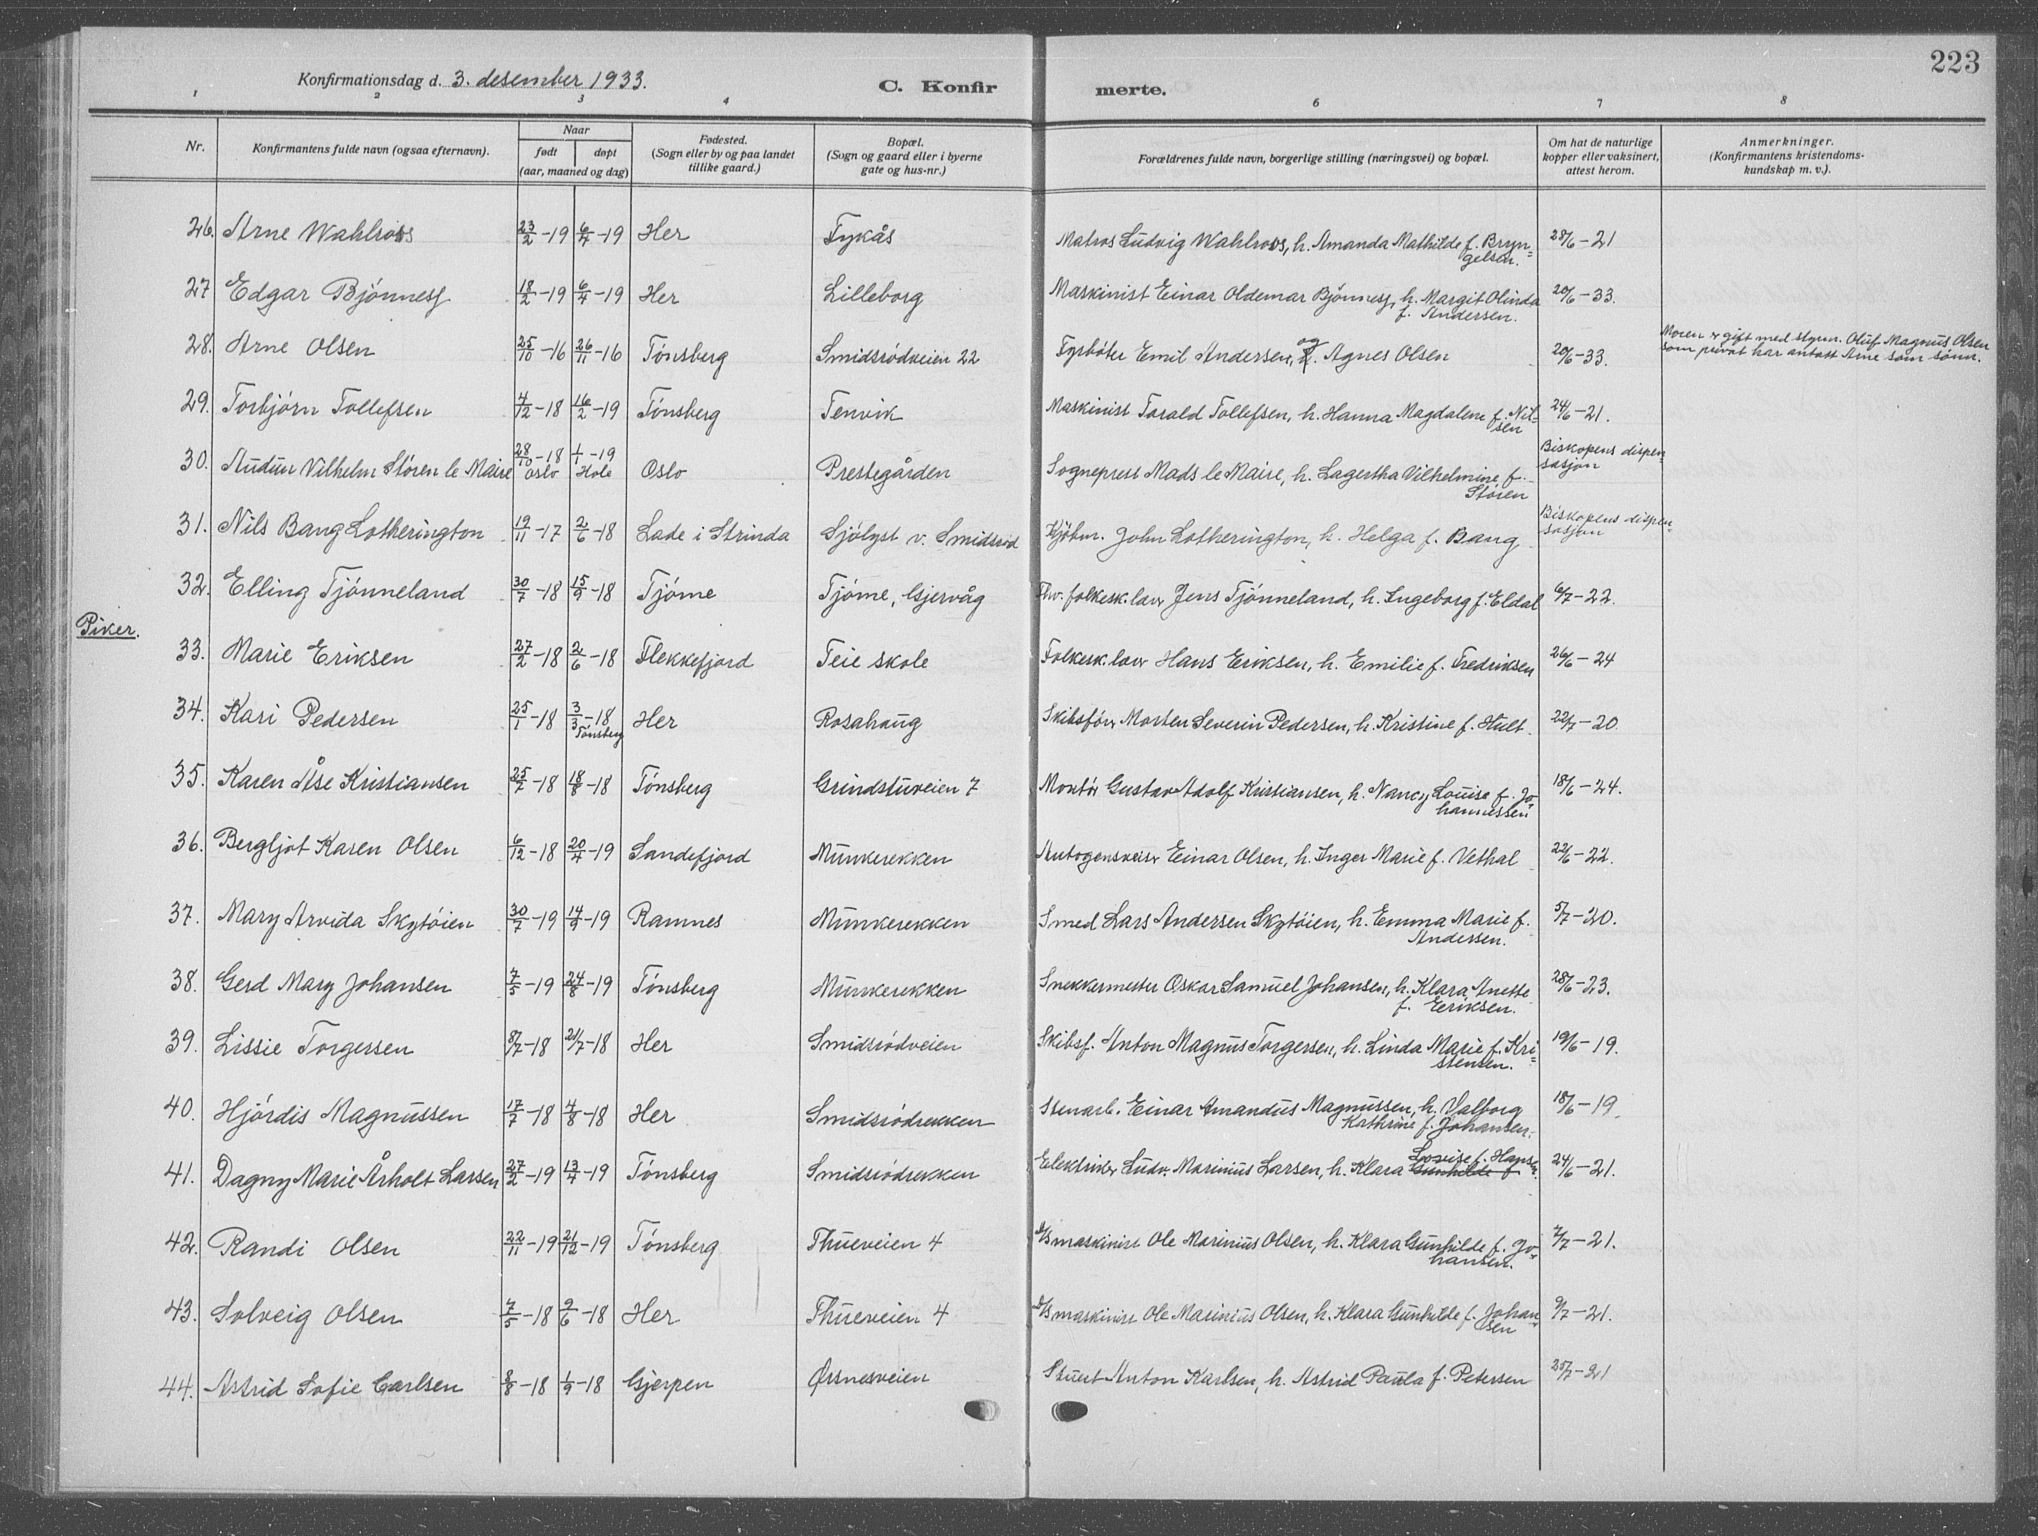 223
Konfirmationsdag d. 3. desember 1933.
C. Konfirmerte.
1 2 3 4 6 7 8
Nr.
Konfirmantens fulde navn (ogsaa efternavn).
Naar
født
døpt
(aar, maaned og dag)
Fødested.
(Sogn eller by og paa landet
tillike gaard.)
Bopæl.
(Sogn og gaard eller i byerne
gate og hus-nr.)
Forældrenes fulde navn, borgerlige stilling (næringsvei) og bopæl.
Om hat de naturlige
kopper eller vaksinert,
attest herom.
Anmerkninger.
(Konfirmantens kristendoms-
kundskap m. v.).
26. Arne Wahlroos 23/2-19 6/4-19 Her Tykås Matros Ludvig Wahlroos, h. Amanda Mathilde f. Bryn=
gelsen. 28/6-21
27 Edgar Bjönness 18/2-19 6/4-19 Her Lilleborg Maskinist Einar Oldemar Bjönness, h. Margit Olinda
f. Andersen. 20/6-33.
28. Arne Olsen 25/10-16 26/11-16 Tönsberg Smidsrödveien 22 Fyrböter Emil Andersen, og Agnes Olsen 20/6-33. Moren er gift med styrm. Oluf Magnus Olsen
som privat har antatt Arne som sönn.
29. Torbjörn Tollefsen 4/12-18 16/2-19 Tönsberg Tenvik Maskinist Torald Tollefsen, h. Hanna Magdalene f. Nil-
sen 24/6-21.
30. Audun Vilhelm Stören le Maire 28/10-18 Oslo 1/1-19 Hole Oslo Prestegården Sogneprest Mads le Maire, h. Lagertha Vilhelmine f.
Stören Biskopens dispen-
sasjon
31. Nils Bang Lotherington 19/11-17 2/6-18 Lade i Strinda Sjölyst v. Smidsröd Kjöbm. John Lotherington, h. Helga f. Bang Biskopens dispen-
sasjon
32. Elling Tjönneland 30/7-18 15/9-18 Tjöme Tjöme, Gjervåg Fhv. folkesk.lær Jens Tjönneland, h. Ingeborg f. Eldal 6/7-22.
Piker.
33. Marie Eriksen 27/2-18 2/6-18 Flekkefjord Teie skole Folkesk.lær Hans Eriksen, h. Emilie f. Fredriksen 26/6-24
34. Kari Pedersen 25/1-18 3/3-18 Tönsberg Her Rosahaug Skibsförer Morten Severin Pedersen, h. Kristine f. Hult. 22/7-20.
35. Karen Åse Kristiansen 25/7-18 18/8-18 Tönsberg Grindstuveien 7 Montör Gustav Adolf Kristiansen, h. Nancy Louise f. Jo-
hannessen 18/6-24.
36. Bergljot Karen Olsen 6/12-18 20/4-19 Sandefjord Munkerekken Autogensveiser Einar Olsen, h. Inger Marie f. Vethal 22/6-22.
37. Mary Arvida Skytöien 30/7-19 14/9-19 Ramnes Munkerekken Smed Lars Andersen Skytöien, h. Emma Marie f.
Andersen. 5/7-20.
38. Gerd Mary Johansen 7/5-19 24/8-19 Tönsberg Munkerekken Snekkermester Oskar Samuel Johansen, h. Klara Anette
f. Eriksen. 28/6-23.
39. Lissie Torgersen 8/7-18 21/7-18 Her Smidsrödveien Skibsf. Anton Magnus Torgersen, h. Linda Marie f. Kri=
stensen. 19/6-19.
40. Hjördis Magnussen 17/7-18 4/8-18 Her Smidsrödrekken Stenarb. Einar Amandus Magnussen, h. Valborg
Kathrine f. Johansen. 18/6-19.
41. Dagny Marie Årholt Larsen 27/2-19 13/4-19 Tönsberg Smidsrödrekken Elektriker Ludv. Marinius Larsen, h. Klara Lovise f. Hansen Gunhilde f 24/6-21.
42. Randi Olsen 22/11-19 21/12-19 Tönsberg Thueveien 4 D/Smaskinist Ole Marinius Olsen, h. Klara Gunhilde f. Jo-
hansen. 7/7-21.
43. Solveig Olsen 7/5-18 9/6-18 Her Thueveien 4 D/Smaskinist Ole Marinius Olsen, h. Klara Gunhilde f. Johan-
sen 9/7-21.
44. Astrid Sofie Carlsen 8/8-18 1/9-18 Gjerpen Örsnesveien Stuert Anton Karlsen, h. Astrid Paula f. Petersen 25/7-21